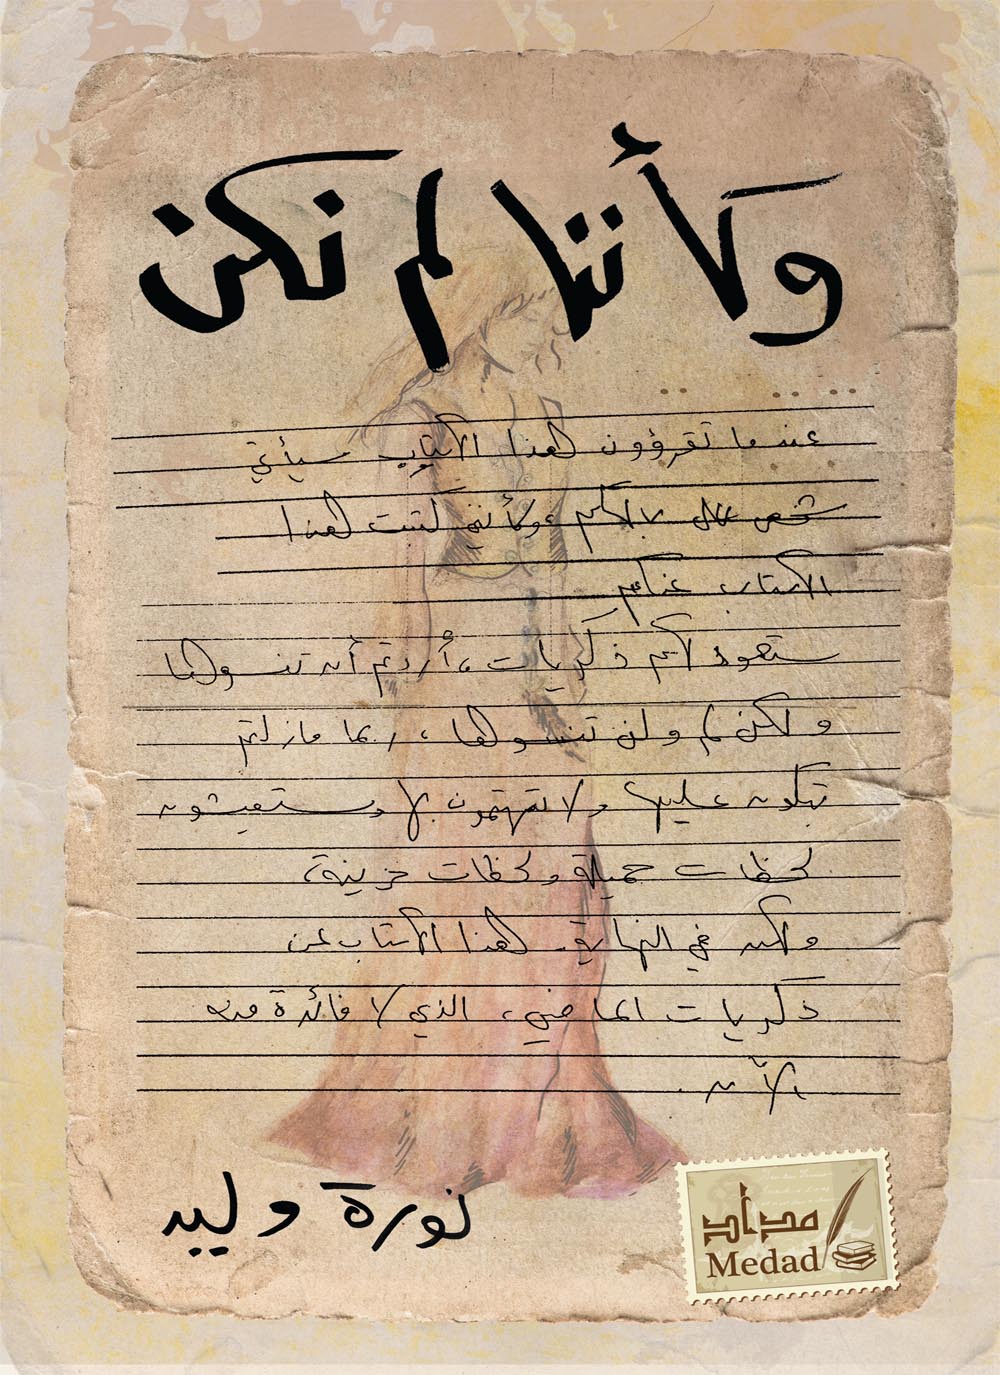 وكأننا لم نكن
عندما تقرؤون هذا الكتاب سيأتي
شخص على بالكم، وكأنني كتبت هذا
الكتاب عنكم
ستعود لكم ذكريات، أردتم أن تنسوها
ولكن لم ولن تنسوها، ربما مازلتم
تبكون عليها ولا تهتمون بها وستعيشون
لحظات جميلة ولحظات حزينة،
ولكن في النهاية. هذا الكتاب عن
ذكريات الماضي، الذي لا فائدة منه
الآن.
نورة وليد
مداد
Medad